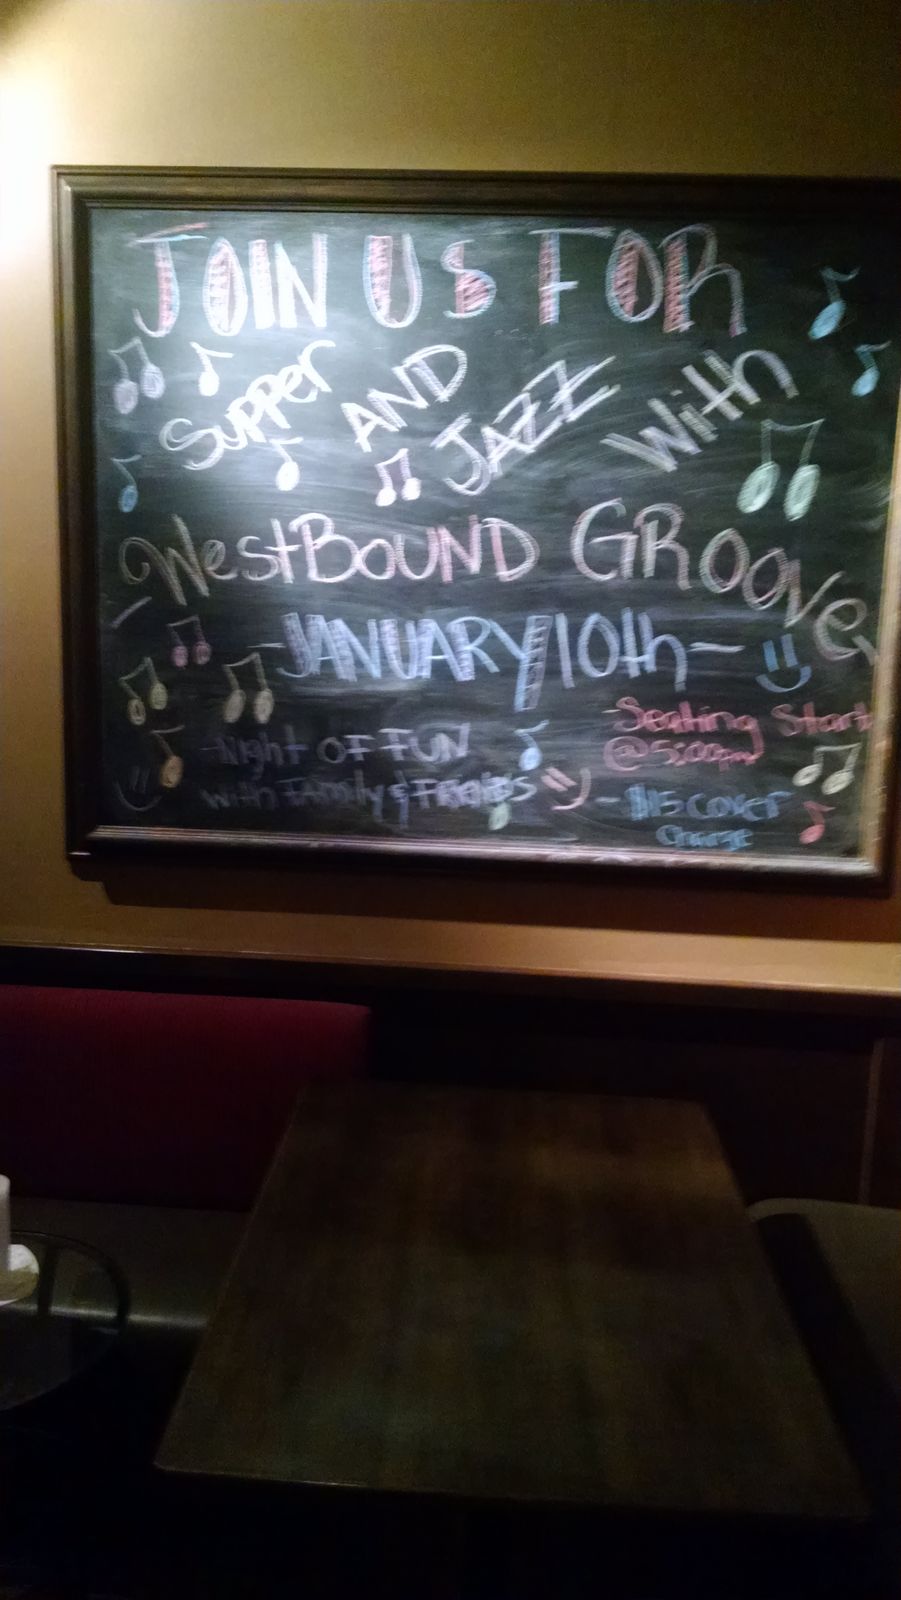 JOIN US FOR
Supper AND JAZZ With
WestBOUND GROOVE
-JANUARY 10th-
-Night OF FUN
with FAmily & FRiENDS
-Seating Start
@5:00pm
-$15 cover
charge